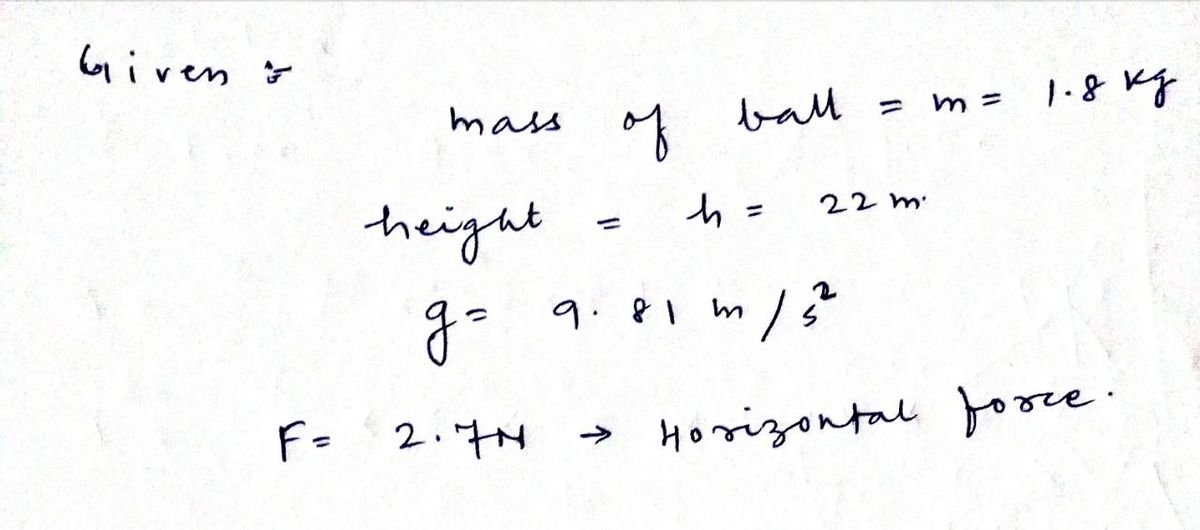 Given :-
mass of ball = m = 1.8 kg
height = h = 22 m.
g = 9.81 m/s²
F = 2.7N → Horizontal force.